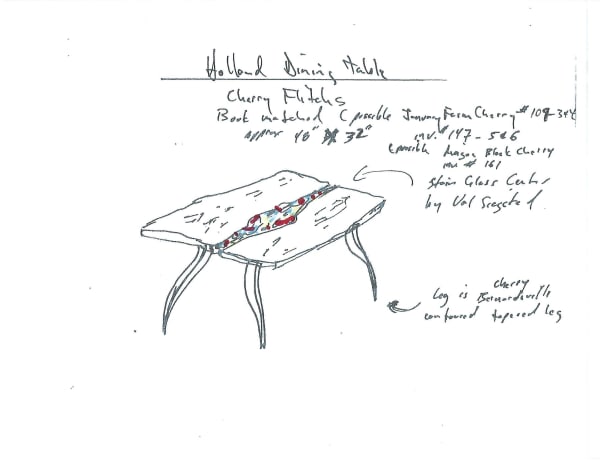 Holland Dining Table
Cherry Flitchs
Book matched (possible January Farm Cherry # 109-344
approx 48" 32" inv.# 147-506
(possible Black Cherry
inv # 161
Stain Glass Center
by Val
Leg is cherry Bernardsville
contoured tapered leg